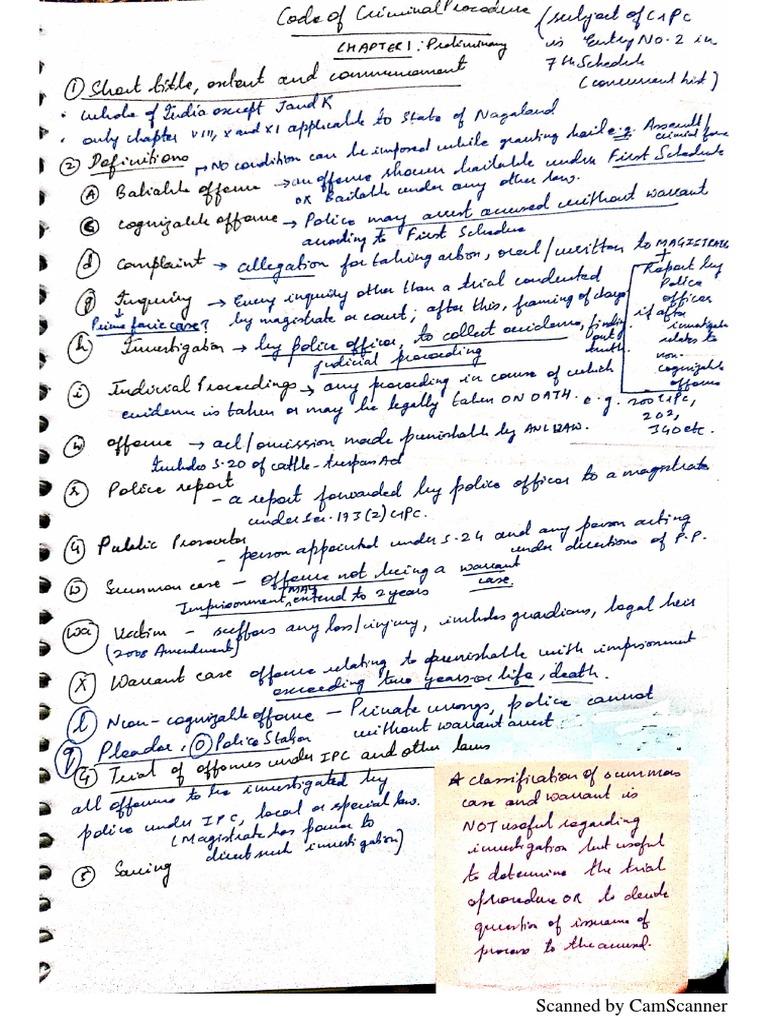 Code of Criminal Procedure
(subject of CrPC
is Entry No. 2 in
7th Schedule
(concurrent list)
CHAPTER 1: Preliminary
① Short title, extent and commencement
• whole of India except J and K
• only chapter VIII, X and XI applicable to State of Nagaland
② Definitions → No condition can be imposed while granting bail e.g. Assault/
criminal force
(A) Bailable offence → an offence shown bailable under First Schedule
OR Bailable under any other law.
(C) cognizable offence → Police may arrest accused without warrant
according to First Schedule
(d) Complaint → allegation for taking action, oral/written to MAGISTRATE
+
Report by
Police
officer
if after
investigation
relates to
non-
cognizable
offence
(g) Inquiry → Every inquiry other than a trial conducted
Prime facie case? by magistrate or court; after this, framing of charges
(h) Investigation → by police officer, to collect evidence, finding
out
truth.
(i) Judicial Proceedings → any proceeding in course of which
judicial proceeding
evidence is taken or may be legally taken ON OATH. e.g. 200 CrPC,
202,
340 etc.
(n) offence → act/omission made punishable by ANY LAW.
Includes S.20 of cattle-trespass Act
(r) Police report
- a report forwarded by police officer to a magistrate
under Sec. 173(2) CrPC.
(u) Public Prosecutor
- person appointed under S-24 and any person acting
under directions of P.P.
(w) Summon case - offence not being a warrant
case.
Imprisonment MAY extend to 2 years
(wa) Victim - suffers any loss/injury, includes guardians, legal heir
(2008 Amendment)
(X) Warrant case offence relating to punishable with imprisonment
exceeding two years or life, death.
(l) Non-cognizable offence - Private wrongs, police cannot
without warrant arrest
(q) Pleader, (o) Police Station
④ Trial of offences under IPC and other laws
all offence to be investigated by
police under IPC, local or special law.
(Magistrate has power to
direct such investigation)
⑤ Saving
* classification of summons
case and warrant is
NOT useful regarding
investigation but useful
to determine the trial
procedure OR to decide
question of issuance of
process to the accused.
Scanned by CamScanner